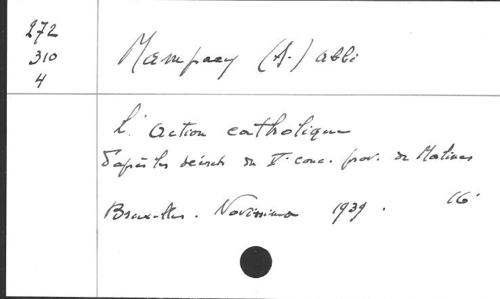 272
310
4
Mampaey (A.) abbé
L'Action catholique
d'après les décrets du Ve conc. prov. de Malines
Bruxelles. Novissima 1939. 16°